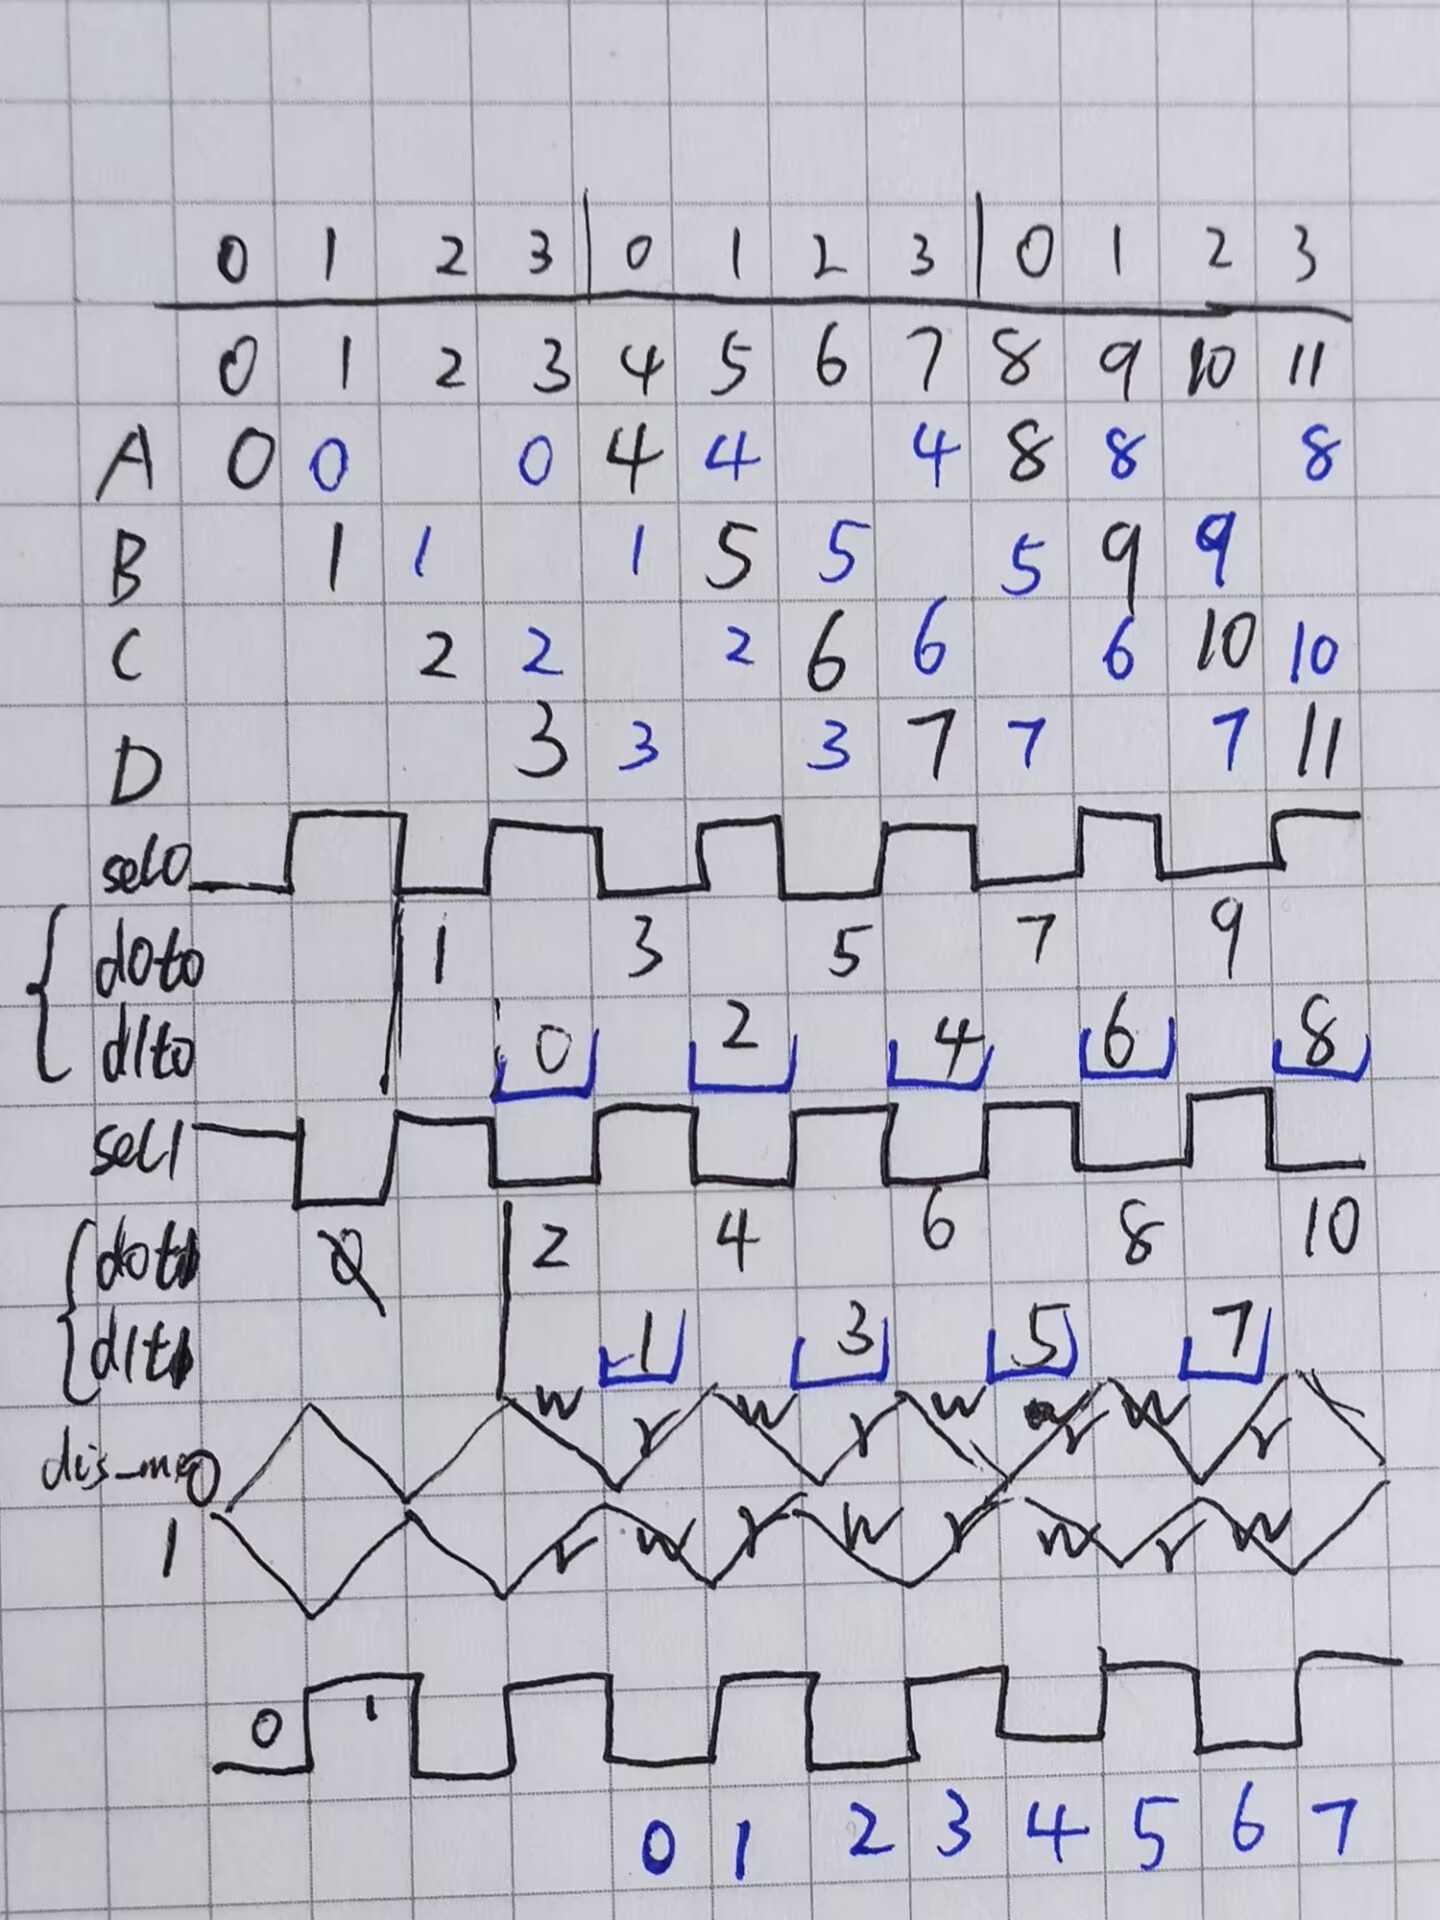 0 1 2 3 0 1 2 3 0 1 2 3
0 1 2 3 4 5 6 7 8 9 10 11
A 0 0 0 4 4 4 8 8 8
B 1 1 1 5 5 5 9 9
C 2 2 2 6 6 6 10 10
D 3 3 3 7 7 7 11
sel0
d0t0 1 3 5 7 9
d1t0 0 2 4 6 8
sel1
d0t1 0 2 4 6 8 10
d1t1 1 3 5 7
w w w w
r r r r
0
1 r w r w r w r w
0 1
0 1 2 3 4 5 6 7